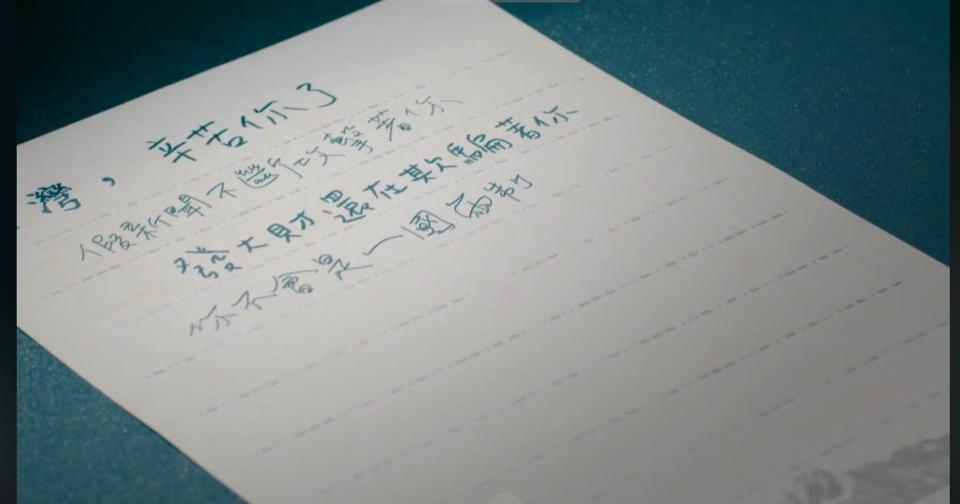 灣，辛苦你了
假新聞不斷攻擊著你
發大財還在欺騙著你
你不會是一國兩制